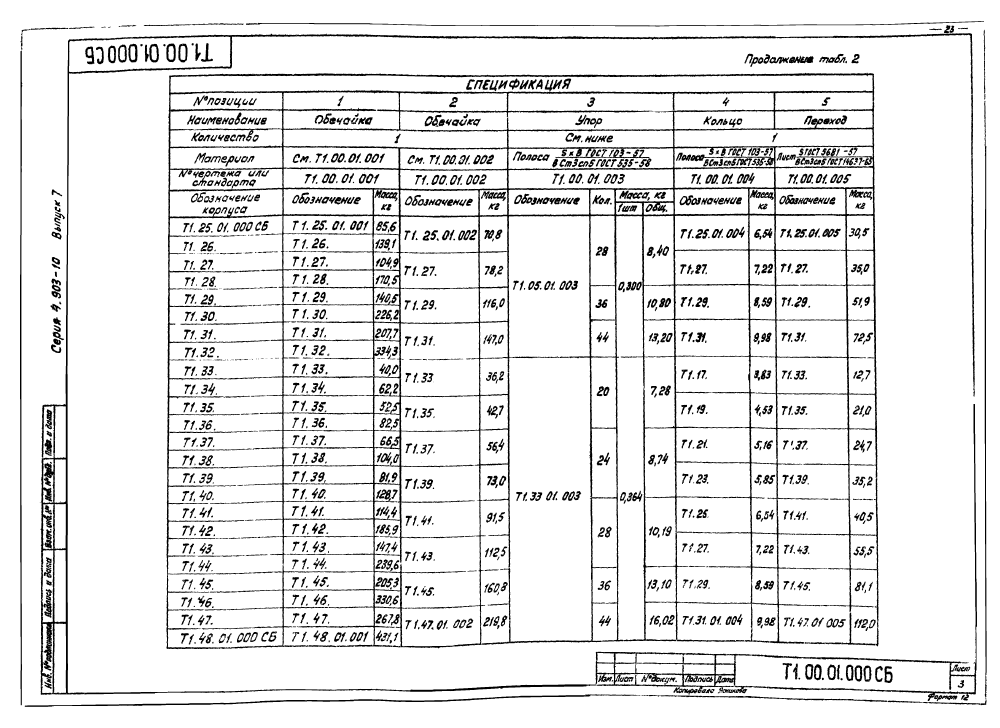 23
Т1.00.01.000СБ
Продолжение табл. 2
СПЕЦИФИКАЦИЯ
№ позиции 1 2 3 4 5
Наименование Обечайка Обечайка Упор Кольцо Переход
Количество 1 См. ниже 1
Материал См. Т1.00.01.001 См. Т1.00.01.002 Полоса S×B ГОСТ 103-57 / ВСт3сп5 ГОСТ 535-58 Полоса S×B ГОСТ 103-57 / ВСт3сп5 ГОСТ 535-58 Лист S ГОСТ 5681-57 / ВСт3сп5 ГОСТ 14637-69
№ чертежа или стандарта Т1.00.01.001 Т1.00.01.002 Т1.00.01.003 Т1.00.01.004 Т1.00.01.005
Обозначение корпуса Обозначение Масса, кг Обозначение Масса, кг Обозначение Кол. Масса, кг 1шт Общ. Обозначение Масса, кг Обозначение Масса, кг
Т1.25.01.000 СБ Т1.25.01.001 85,6 Т1.25.01.002 70,8 Т1.05.01.003 28 0,300 8,40 Т1.25.01.004 6,54 Т1.25.01.005 30,5
Т1.26. Т1.26. 139,1
Т1.27. Т1.27. 104,9 Т1.27. 78,2 Т1.27. 7,22 Т1.27. 35,0
Т1.28. Т1.28. 170,5
Т1.29. Т1.29. 140,5 Т1.29. 116,0 36 10,80 Т1.29. 8,59 Т1.29. 51,9
Т1.30. Т1.30. 226,2
Т1.31. Т1.31. 207,7 Т1.31. 147,0 44 13,20 Т1.31. 9,98 Т1.31. 72,5
Т1.32. Т1.32. 334,3
Т1.33. Т1.33. 40,0 Т1.33 36,2 Т1.33 01.003 20 0,364 7,28 Т1.17. 3,83 Т1.33. 12,7
Т1.34. Т1.34. 62,2
Т1.35. Т1.35. 52,5 Т1.35. 42,7 Т1.19. 4,53 Т1.35. 21,0
Т1.36. Т1.36. 82,5
Т1.37. Т1.37. 66,5 Т1.37. 56,4 24 8,74 Т1.21. 5,16 Т1.37. 24,7
Т1.38. Т1.38. 104,0
Т1.39. Т1.39. 81,9 Т1.39. 73,0 Т1.23. 5,85 Т1.39. 35,2
Т1.40. Т1.40. 128,7
Т1.41. Т1.41. 114,4 Т1.41. 91,5 28 10,19 Т1.25. 6,54 Т1.41. 40,5
Т1.42. Т1.42. 185,9
Т1.43. Т1.43. 147,4 Т1.43. 112,5 Т1.27. 7,22 Т1.43. 55,5
Т1.44. Т1.44. 239,6
Т1.45. Т1.45. 205,3 Т1.45. 160,8 36 13,10 Т1.29. 8,59 Т1.45. 81,1
Т1.46. Т1.46. 330,6
Т1.47. Т1.47. 267,8 Т1.47.01.002 219,8 44 16,02 Т1.31.01.004 9,98 Т1.47.01 005 112,0
Т1.48.01.000 СБ Т1.48.01.001 431,1
Серия 4.903-10 Выпуск 7
Инв. № подлинника Подпись и дата Взам. инв. № Инв. № дубл. Подп. и дата
Изм. Лист № докум. Подпись Дата
Т1.00.01.000 СБ
Лист
3
Копировала
Формат 12